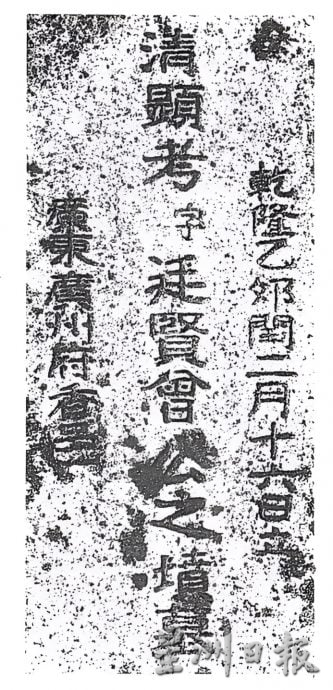 乾隆乙卯閏二月十六日立
清顯考字廷賢曾公之墳墓
廣東廣州府香
星洲日報